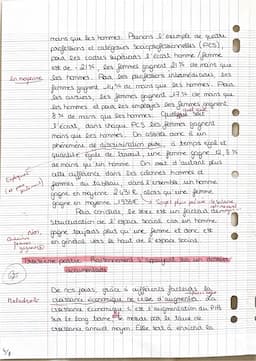 moins que les hommes. Prenons l'exemple de quatre
professions et catégories socioprofessionnelles (PCS),
pour les cadres supérieurs l'écart homme / femme
est de -21%, les femmes gagnent 21% de moins que
En moyenne
les hommes. Pour les professions intermédiaires, les
femmes gagnent 14,% de moins que les hommes. Pour
les ouvriers, les femmes gagnent 17% de moins que
les hommes et pour les employés les femmes gagnent
8% de moins que les hommes. Quelque soit
l'écart, dans chaque PCS les femmes gagnent
moins que les hommes. On assiste donc à un
phénomène de discrimination pure, à temps égal et
qualité égale de travail, une femme gagne 12,8%
de moins qu'un homme. On voit d'autant plus
cette différence dans les colonnes hommes et
femmes du tableau, dans l'ensemble un homme
gagne en moyenne 2 €, alors qu'une femme
gagne en moyenne
Pour conclure, le sexe est un facteur de
structuration de l'espace social car un homme
gagne toujours plus qu'une femme et donc est
en général vers le haut de l'espace social.
Troisième partie: Raisonnement s'appuyant sur un dossier
documentaire
De nos jours, grâce à différents facteurs la
croissance économique ne cesse d'augmenter. La
croissance économique c'est l'augmentation du PIB
sur le long terme, se mesure par le taux de
croissance annuel moyen. Elle sert à enrichir la